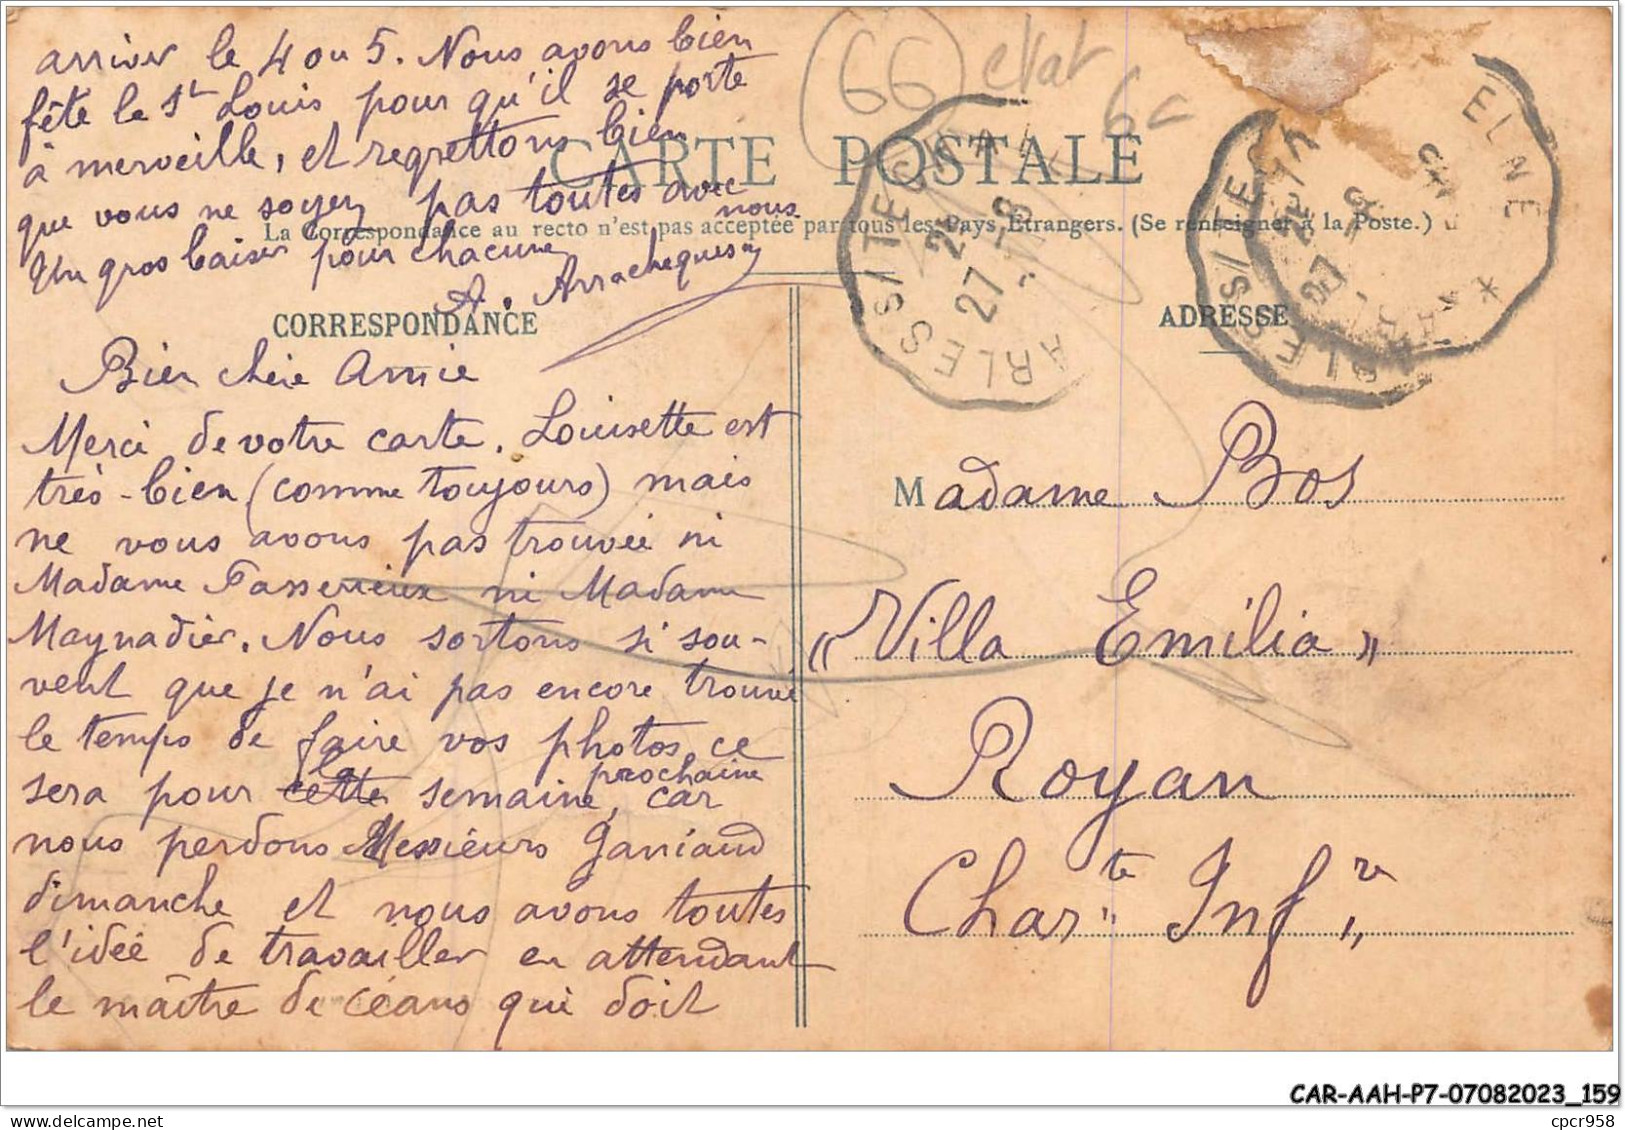 arriver le 4 ou 5. Nous avons bien
fête le St Louis pour qu'il se porte
à merveille, et regrettons bien
que vous ne soyez pas toutes avec
nous
Un gros baiser pour chacune
A. Arracheguesn
66 etat
6c
CARTE POSTALE
La Correspondance au recto n'est pas acceptée par tous les Pays Etrangers. (Se renseigner à la Poste.)
CORRESPONDANCE
Bien chère Amie
Merci de votre carte. Louisette est
très-bien (comme toujours) mais
ne vous avons pas trouvée ni
Madame Tasserieux ni Madame
Maynadier. Nous sortons si sou-
vent que je n'ai pas encore trouvé
le temps de faire vos photos, ce
sera pour cette la semaine prochaine, car
nous perdons Messieurs Ganiaud
dimanche et nous avons toutes
l'idée de travailler en attendant
le maître de céans qui doit
ADRESSE
Madame Bos
"Villa Emilia"
Royan
Charte Infre
ARLES S/TECH
27 - 8
ELNE
ARLES S/TECH
CAR-AAH-P7-07082023_159
cpcr958